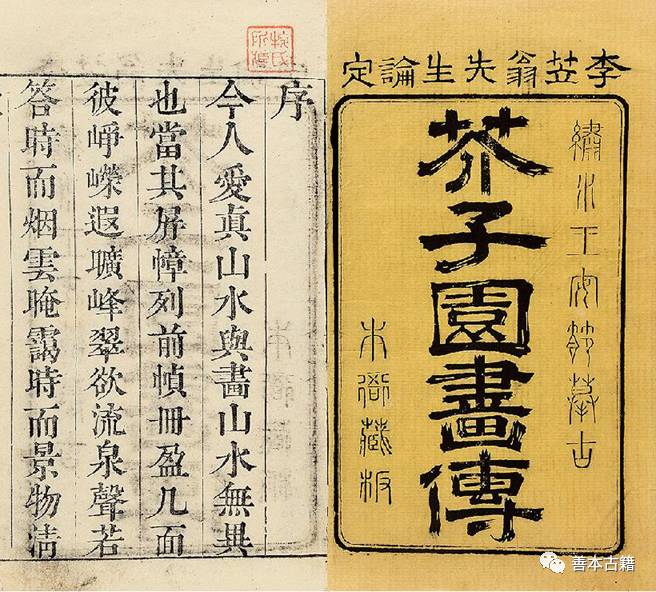 李笠翁先生論定
繡水王安節摹古
芥子園畫傳
本衙藏板
序
今人愛眞山水與畫山水無異
也當其屏幛列前幀冊盈几面
彼崢嶸遐曠峰翠欲流泉聲若
答時而烟雲晻靄時而景物淸
善本古籍